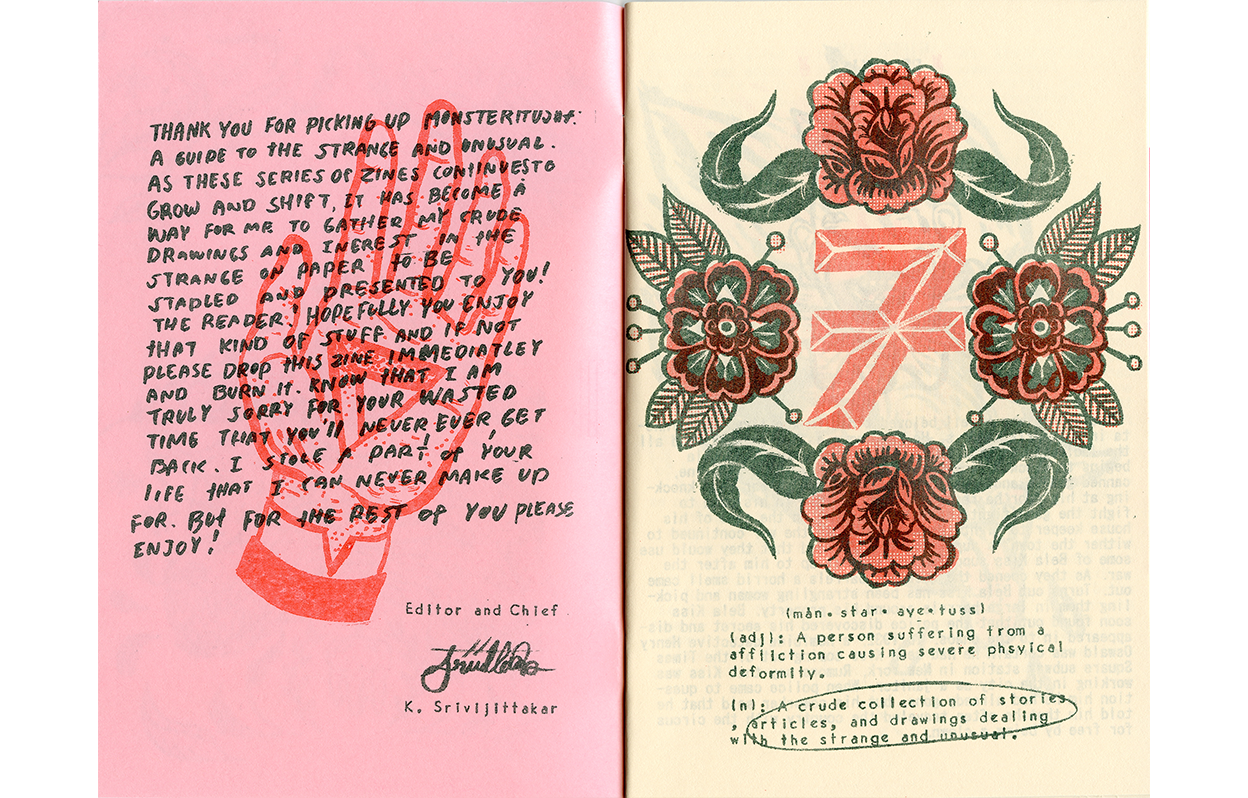 THANK YOU FOR PICKING UP MONSTERITUS#7:
A GUIDE TO THE STRANGE AND UNUSUAL.
AS THESE SERIES OF ZINES CONTINUES TO
GROW AND SHIFT, IT HAS BECOME A
WAY FOR ME TO GATHER MY CRUDE
DRAWINGS AND INEREST IN THE
STRANGE ON PAPER TO BE
STADLED AND PRESENTED TO YOU!
THE READER! HOPEFULLY YOU ENJOY
THAT KIND OF STUFF AND IF NOT
PLEASE DROP THIS ZINE IMMEDIATLEY
AND BURN IT. KNOW THAT I AM
TRULY SORRY FOR YOUR WASTED
TIME THAT YOU'll NEVER EVER, GET
BACK. I STOLE A PART OF YOUR
LIFE THAT I CAN NEVER MAKE UP
FOR. BUT FOR THE REST OF YOU PLEASE
ENJOY!
Editor and Chief
K. Srivijittakar
7
(män•star•aye•tuss)
(adj): A person suffering from a
affliction causing severe phsyical
deformity.
(n): A crude collection of stories
, articles, and drawings dealing
with the strange and unusual.